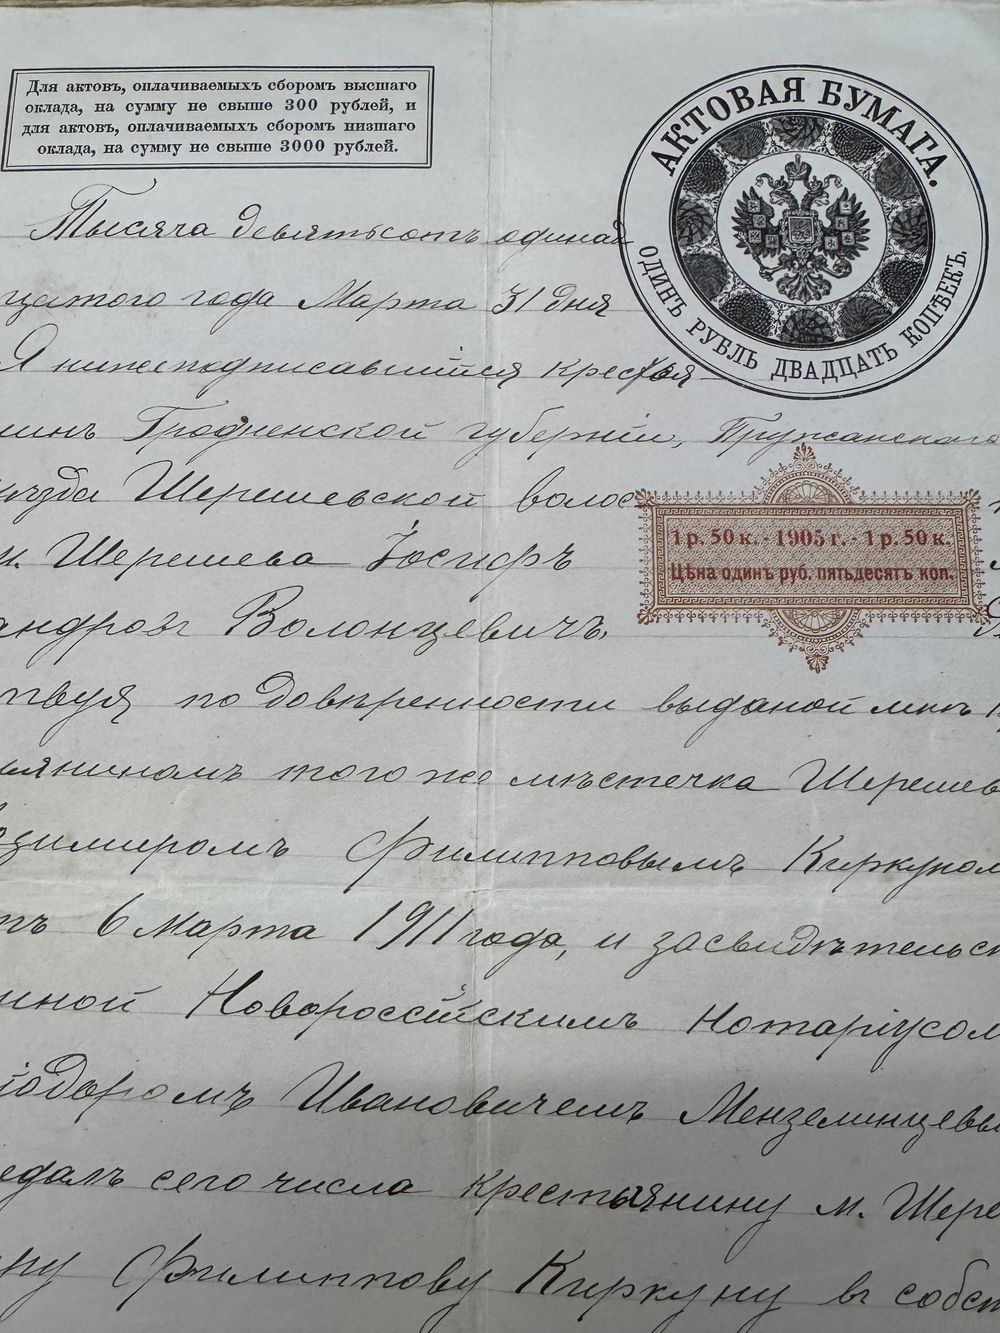 Для актовъ, оплачиваемыхъ сборомъ высшаго
оклада, на сумму не свыше 300 рублей, и
для актовъ, оплачиваемыхъ сборомъ низшаго
оклада, на сумму не свыше 3000 рублей.
АКТОВАЯ БУМАГА.
ОДИНЪ РУБЛЬ ДВАДЦАТЬ КОПѢЕКЪ.
Тысяча девятьсотъ одинад
цатого года Марта 31 дня
Я нижеподписавшійся крестья-
нинъ Гродненской губерніи, Пружанскаго
уѣзда Шерешевской волос
м. Шерешева Іосифъ
1 р. 50 к. - 1905 г. - 1 р. 50 к.
Цѣна одинъ руб. пятьдесятъ коп.
андровъ Волонцевичъ,
ствуя по довѣренности выданой мнѣ к
ьяниномъ того же мѣстечка Шерешев
димиромъ Филипповымъ Киркуном
отъ 6 Марта 1911 года, и засвидѣтельст
анной Новороссійскимъ Нотаріусом
іодоромъ Ивановичемъ Мензелинцевы
едалъ сего числа крестьянину м. Шере
ну Филиппову Киркуну въ собст